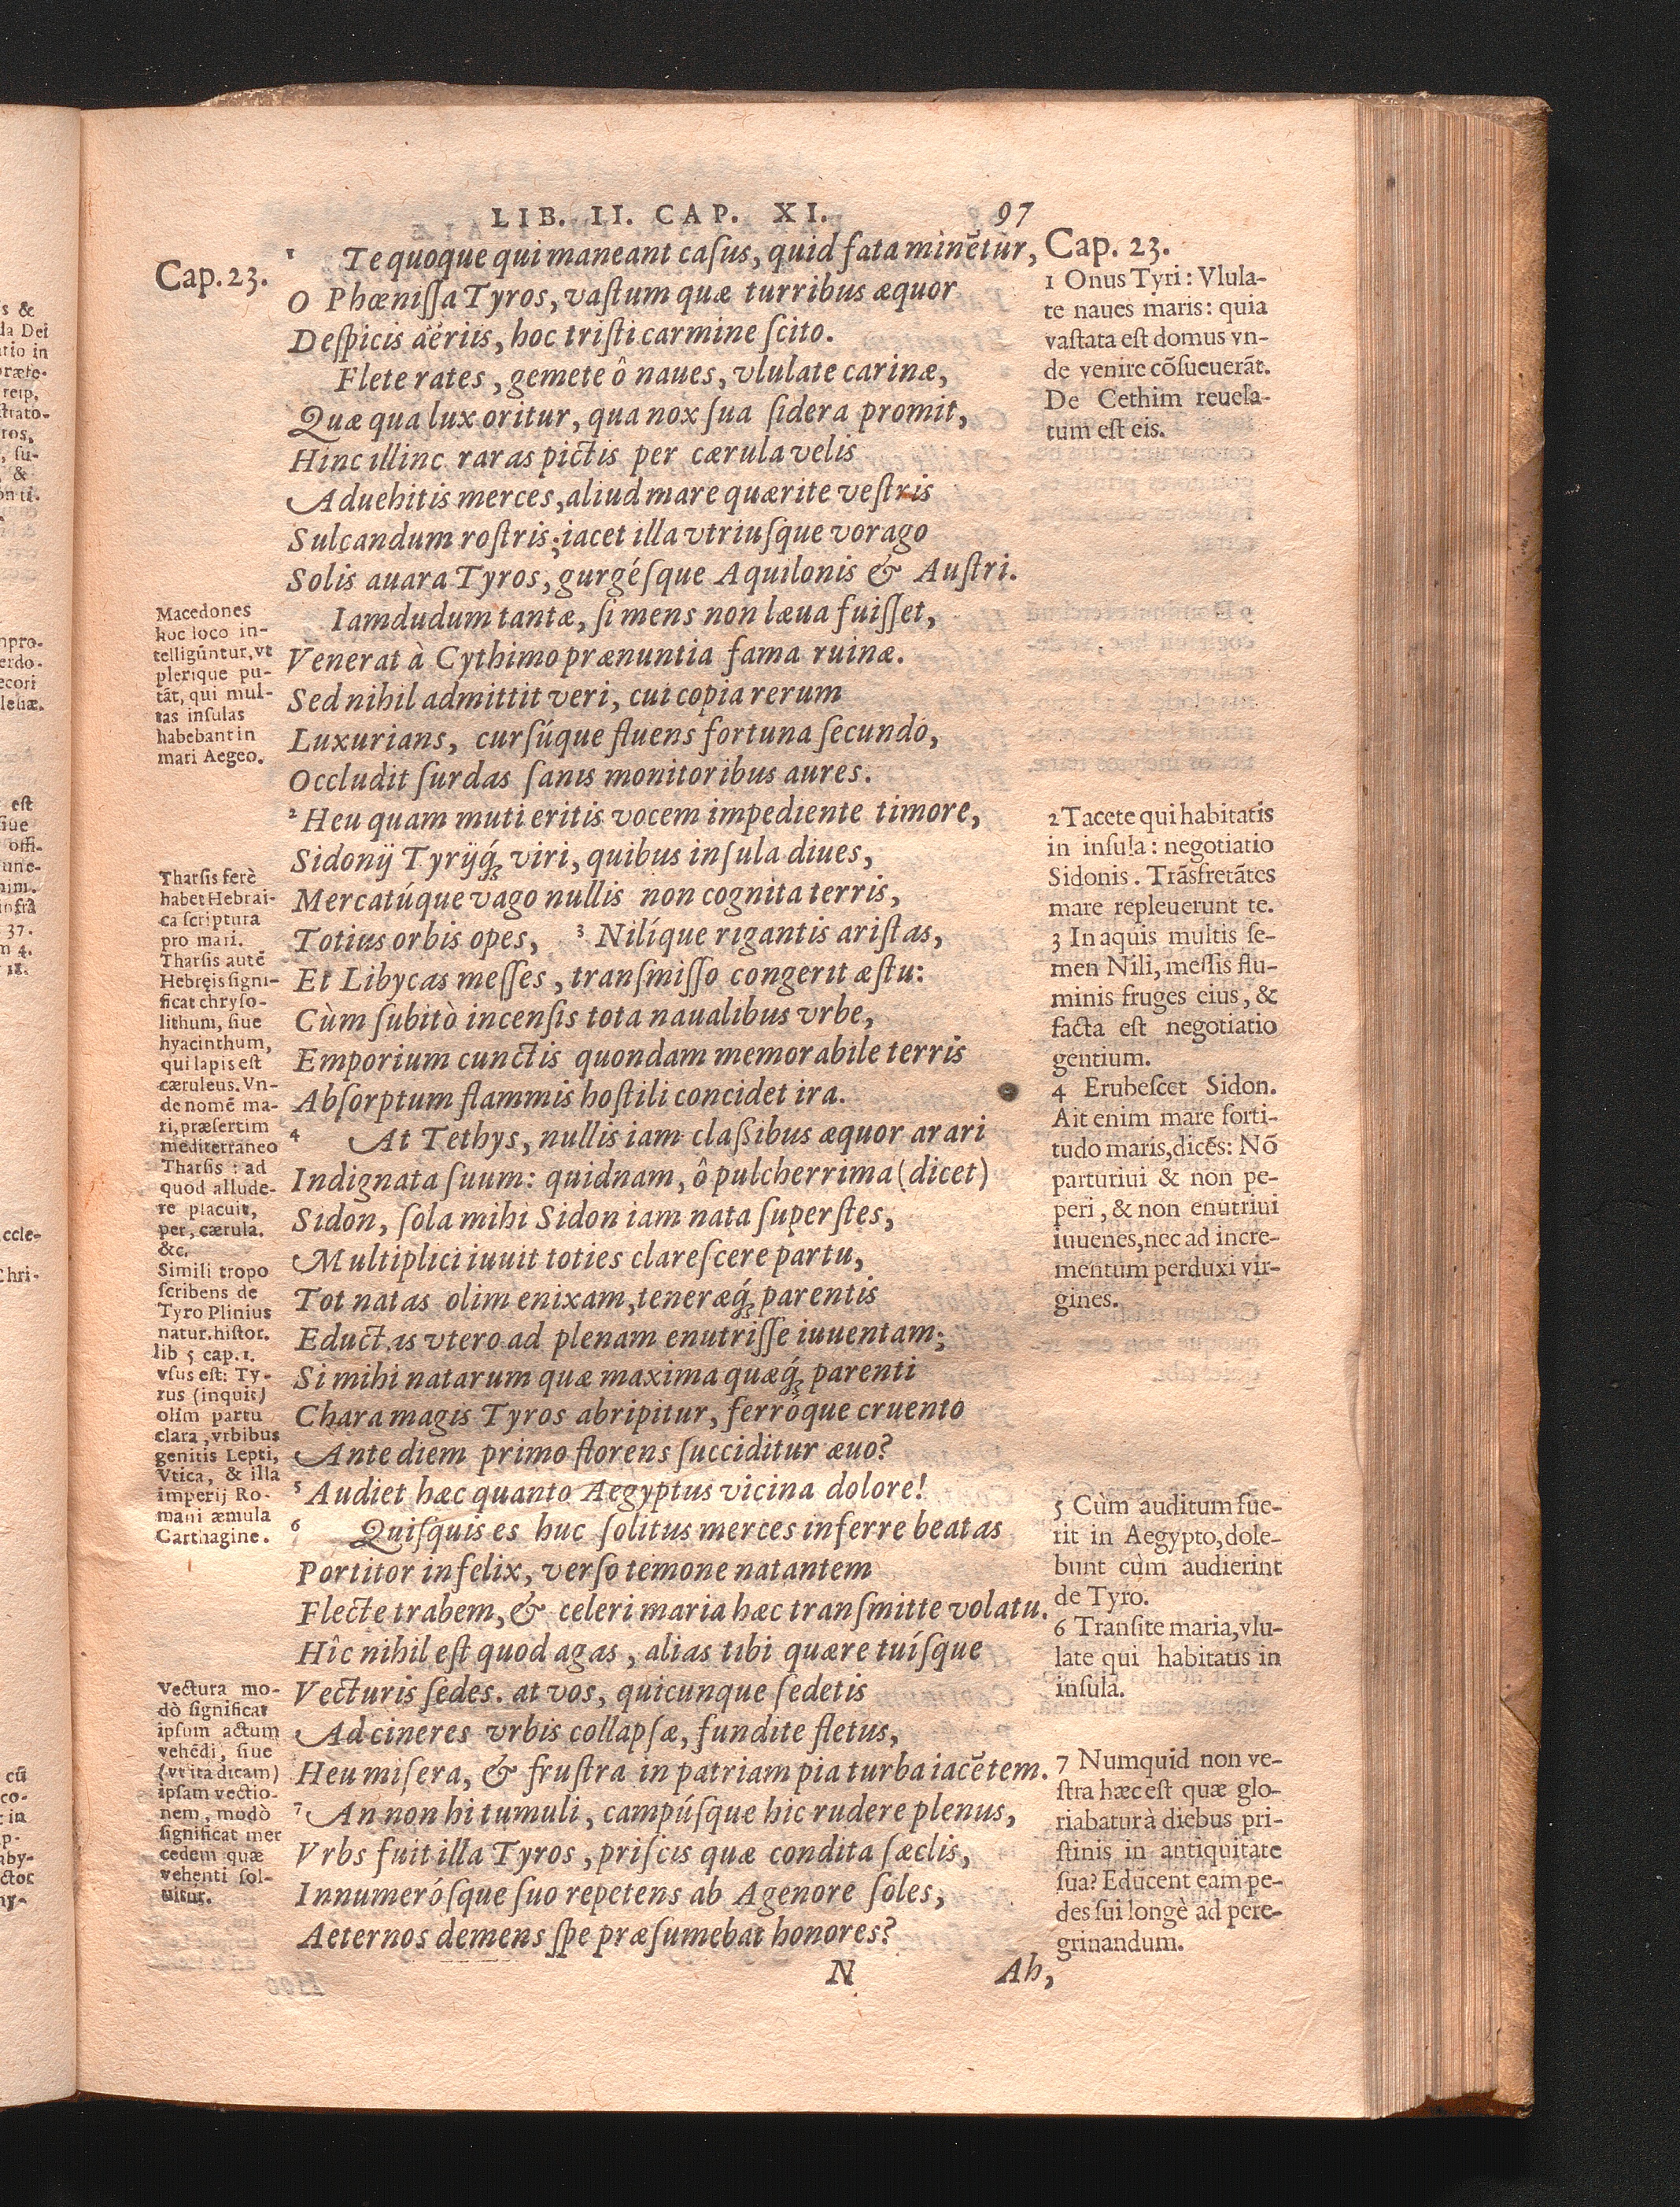 LIB. II. CAP. XI. 97
Cap. 23.
Macedones
hoc loco in-
telligūntur, vt
plerique pu-
tāt, qui mul-
tas insulas
habebant in
mari Aegeo.
Tharsis ferè
habet Hebrai-
ca scriptura
pro mari.
Tharsis autē
Hebręis signi-
ficat chryso-
lithum, siue
hyacinthum,
qui lapis est
cæruleus. Vn-
de nomē ma-
ri, præsertim
mediterraneo
Tharsis : ad
quod allude-
re placuit,
per, cærula.
&c.
Simili tropo
scribens de
Tyro Plinius
natur. histor.
lib 5 cap. 1.
vsus est: Ty-
rus (inquit)
olim partu
clara, vrbibus
genitis Lepti,
Vtica, & illa
imperij Ro-
mani æmula
Carthagine.
Vectura mo-
dò significat
ipsum actum
vehēdi, siue
(vt ita dicam)
ipsam vectio-
nem, modò
significat mer
cedem quæ
vehenti sol-
uitur.
1 Te quoque qui maneant casus, quid fata minētur,
O Phœnissa Tyros, vastum quæ turribus æquor
Despicis aëriis, hoc tristi carmine scito.
Flete rates, gemete ô naues, vlulate carinæ,
Quæ qua lux oritur, qua nox sua sidera promit,
Hinc illinc raras pictis per cærula velis
Aduehitis merces, aliud mare quærite vestris
Sulcandum rostris; iacet illa vtriusque vorago
Solis auara Tyros, gurgésque Aquilonis & Austri.
Iamdudum tantæ, si mens non læua fuisset,
Venerat à Cythimo prænuntia fama ruinæ.
Sed nihil admittit veri, cui copia rerum
Luxurians, cursúque fluens fortuna secundo,
Occludit surdas sanis monitoribus aures.
2 Heu quam muti eritis vocem impediente timore,
Sidonij Tyrijq́; viri, quibus insula diues,
Mercatúque vago nullis non cognita terris,
Totius orbis opes, 3 Nilíque rigantis aristas,
Et Libycas messes, transmisso congerit æstu:
Cùm subitò incensis tota naualibus vrbe,
Emporium cunctis quondam memorabile terris
Absorptum flammis hostili concidet ira.
4 At Tethys, nullis iam classibus æquor arari
Indignata suum: quidnam, ô pulcherrima (dicet)
Sidon, sola mihi Sidon iam nata superstes,
Multiplici iuuit toties clarescere partu,
Tot natas olim enixam, teneræq́; parentis
Eductas vtero ad plenam enutrisse iuuentam;
Si mihi natarum quæ maxima quæq́; parenti
Chara magis Tyros abripitur, ferróque cruento
Ante diem primo florens succiditur æuo?
5 Audiet hæc quanto Aegyptus vicina dolore!
6 Quisquis es huc solitus merces inferre beatas
Portitor infelix, verso temone natantem
Flecte trabem, & celeri maria hæc transmitte volatu.
Hîc nihil est quod agas, alias tibi quære tuísque
Vecturis sedes. at vos, quicunque sedetis
Ad cineres vrbis collapsæ, fundite fletus,
Heu misera, & frustra in patriam pia turba iacētem.
7 An non hi tumuli, campúsque hic rudere plenus,
Vrbs fuit illa Tyros, priscis quæ condita sæclis,
Innumerósque suo repetens ab Agenore soles,
Aeternos demens spe præsumebat honores?
N Ah,
Cap. 23.
1 Onus Tyri: Vlula-
te naues maris: quia
vastata est domus vn-
de venire cōsueuerāt.
De Cethim reuela-
tum est eis.
2 Tacete qui habitatis
in insula: negotiatio
Sidonis. Trāsfretātes
mare repleuerunt te.
3 In aquis multis se-
men Nili, messis flu-
minis fruges eius, &
facta est negotiatio
gentium.
4 Erubescet Sidon.
Ait enim mare forti-
tudo maris, dicēs: Nō
parturiui & non pe-
peri, & non enutriui
iuuenes, nec ad incre-
mentum perduxi vir-
gines.
5 Cùm auditum fue-
rit in Aegypto, dole-
bunt cùm audierint
de Tyro.
6 Transite maria, vlu-
late qui habitatis in
insula.
7 Numquid non ve-
stra hæc est quæ glo-
riabatur à diebus pri-
stinis in antiquitate
sua? Educent eam pe-
des sui longè ad pere-
grinandum.